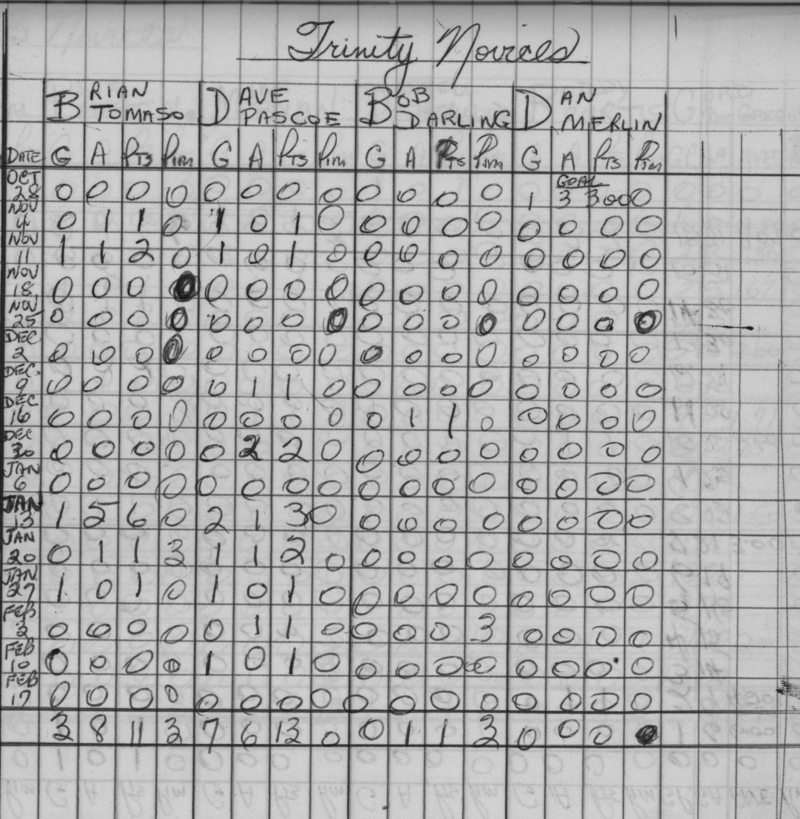 Trinity Novices
BRIAN TOMASO DAVE PASCOE BOB DARLING DAN MERLIN
DATE G A PTS Pim G A PTS Pim G A PTS Pim G A PTS Pim
GOAL
OCT 28 0 0 0 0 0 0 0 0 0 0 0 0 1 3 3.00 0
NOV 4 0 1 1 0 1 0 1 0 0 0 0 0 0 0 0 0
NOV 11 1 1 2 0 1 0 1 0 0 0 0 0 0 0 0 0
NOV 18 0 0 0 0 0 0 0 0 0 0 0 0 0 0 0 0
NOV 25 0 0 0 0 0 0 0 0 0 0 0 0 0 0 0 0
DEC 2 0 0 0 0 0 0 0 0 0 0 0 0 0 0 0 0
DEC 9 0 0 0 0 0 1 1 0 0 0 0 0 0 0 0 0
DEC 16 0 0 0 0 0 0 0 0 0 1 1 0 0 0 0 0
DEC 30 0 0 0 0 0 2 2 0 0 0 0 0 0 0 0 0
JAN 6 0 0 0 0 0 0 0 0 0 0 0 0 0 0 0 0
JAN 13 1 5 6 0 2 1 3 0 0 0 0 0 0 0 0 0
JAN 20 0 1 1 3 1 1 2 0 0 0 0 0 0 0 0 0
JAN 27 1 0 1 0 1 0 1 0 0 0 0 0 0 0 0 0
FEB 3 0 0 0 0 0 1 1 0 0 0 0 3 0 0 0 0
FEB 10 0 0 0 0 1 0 1 0 0 0 0 0 0 0 0 0
FEB 17 0 0 0 0 0 0 0 0 0 0 0 0 0 0 0 0
3 8 11 3 7 6 13 0 0 1 1 3 0 0 0